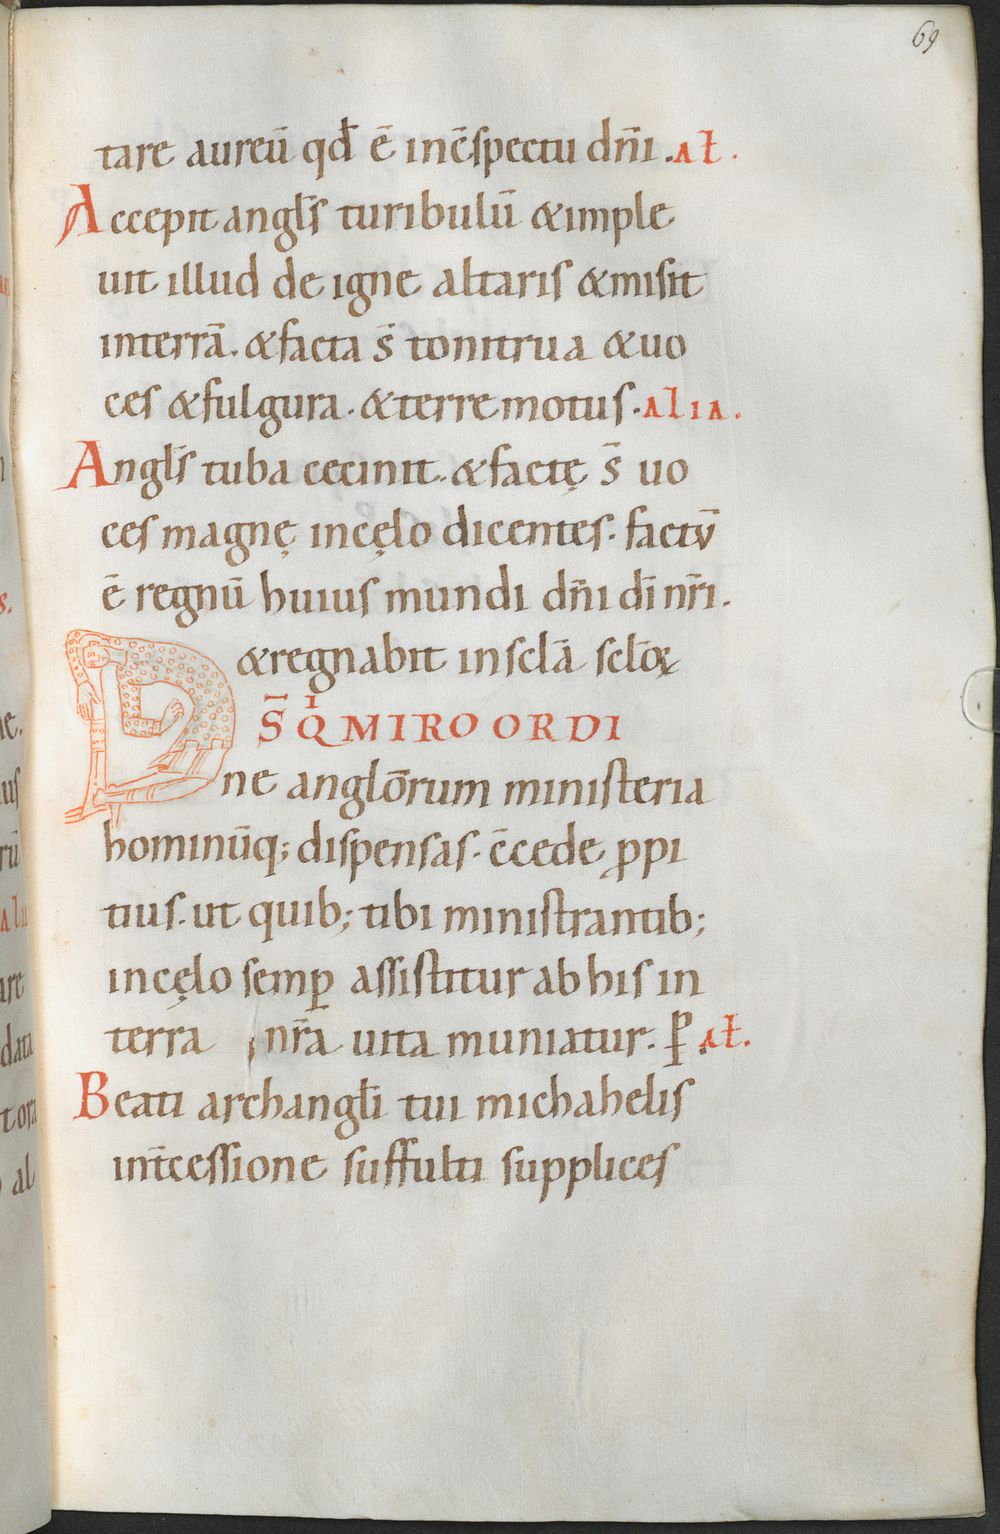 69
tare aureū qđ ē inc̄spectu dn̄i. Al̄.
Accepit angl̄s turibulū &imple
uit illud de igne altaris &misit
interrā. &facta s̄ tonitrua &uo
ces &fulgura. &terremotus. alia.
Angl̄s tuba cecinit. &factę s̄ uo
ces magnę incęlo dicentes. factū
ē regnū huius mundi dn̄i dī nr̄i.
&regnabit inseclā seclōꝝ
DS̄ QͥMIRO ORDI
ne anglōrum ministeria
hominūq; dispensas. c̄cede ꝓpi
tius. ut quib; tibi ministrantib;
incęlo semꝑ assistitur ab his in
terra nr̄a uita muniatur. P̄. al̄.
Beati archangl̄i tui michahelis
int̄cessione suffulti supplices